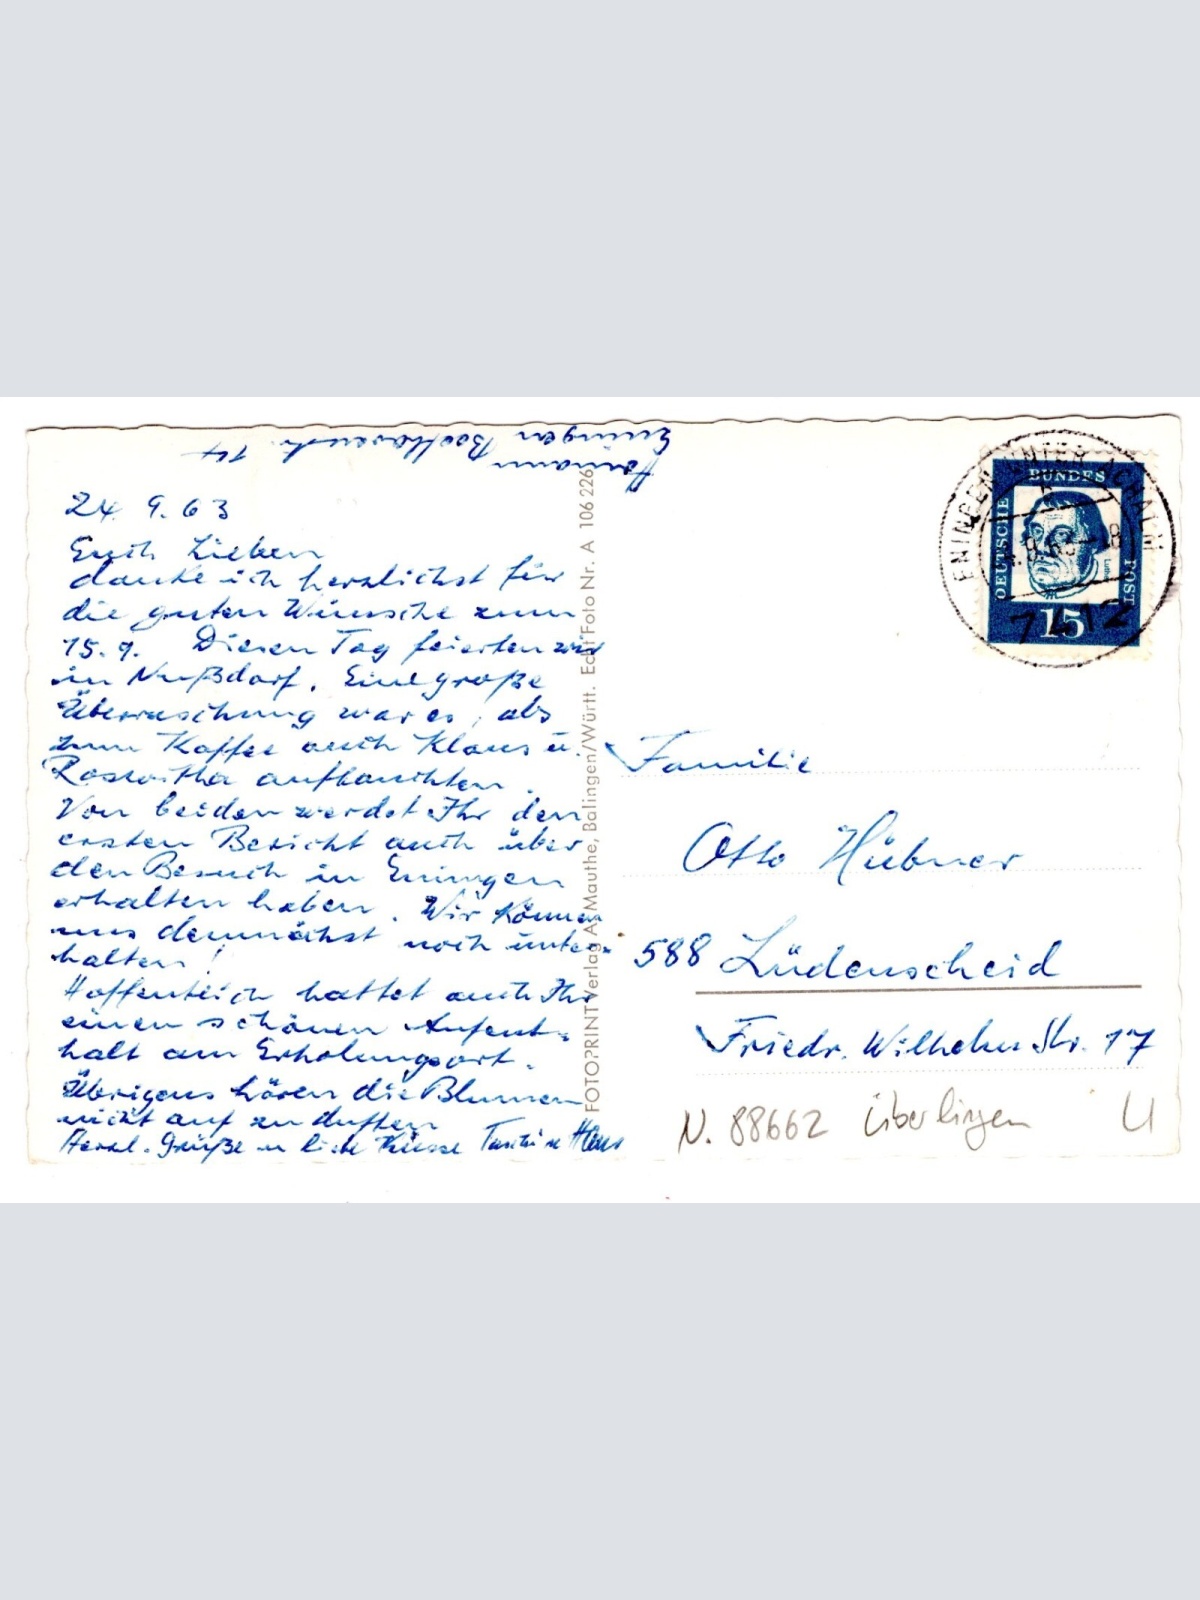 Eningen
14
24. 9. 63
Euch Lieben
danke ich herzlichst für
die guten Wünsche zum
15. 9. Diesen Tag feierten wir
in Nußdorf. Eine große
Überraschung war es, als
zum Kaffee auch Klaus u.
Roswitha auftauchten.
Von beiden werdet Ihr den
ersten Bericht auch über
den Besuch in Eningen
erhalten haben. Wir können
uns demnächst noch unter-
halten!
Hoffentlich hattet auch Ihr
einen schönen Aufent-
halt am Erholungsort.
Übrigens hören die Blumen
nicht auf zu duften
Herzl. Grüße u. Küsse
FOTOPRINT Verlag A. Mauthe, Balingen/Württ. Echt Foto Nr. A 106 226
ENINGEN UNTER ACHALM
7412
DEUTSCHE BUNDESPOST
Luther
15
Familie
Otto Hübner
588 Lüdenscheid
Friedr. Wilhelm Str. 17
N. 88662 Überlingen U